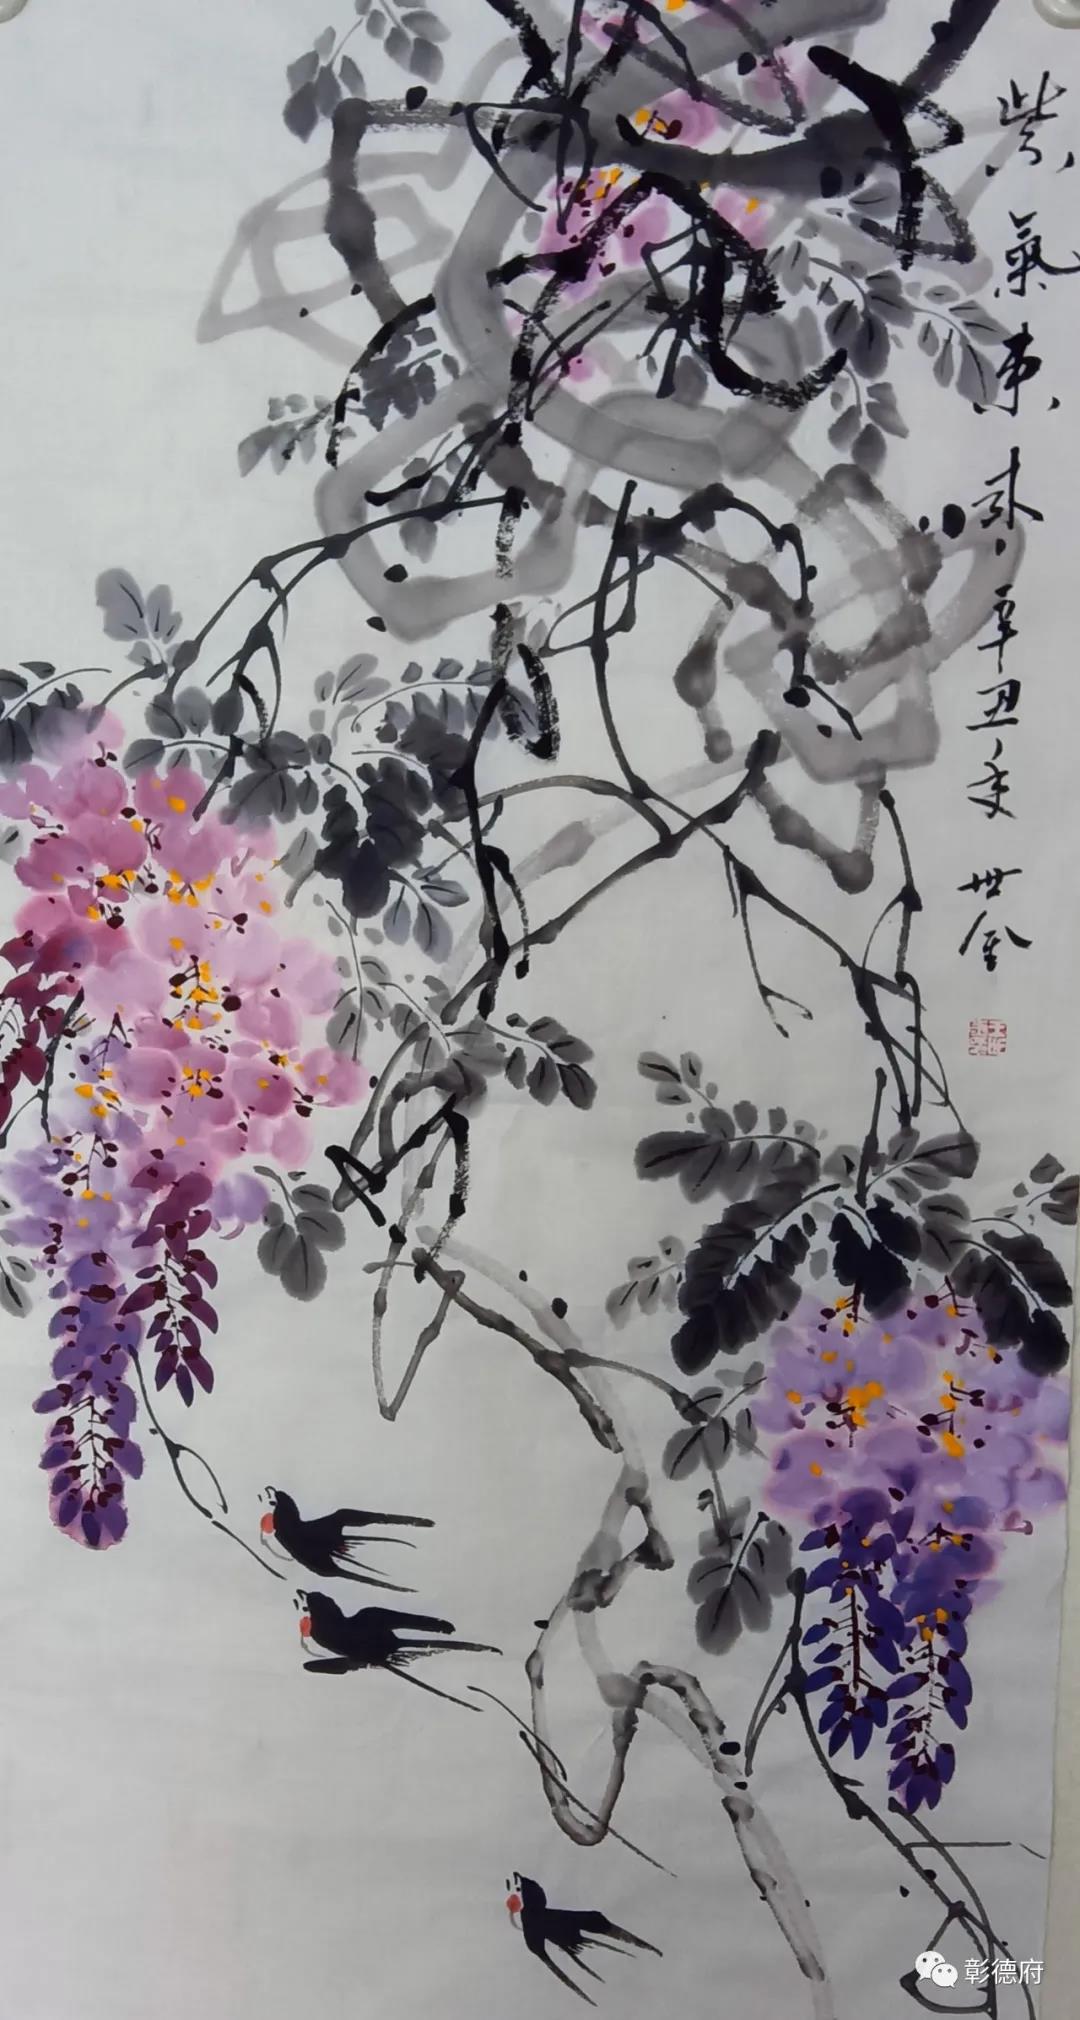 紫氣東来辛丑年世金
彰德府